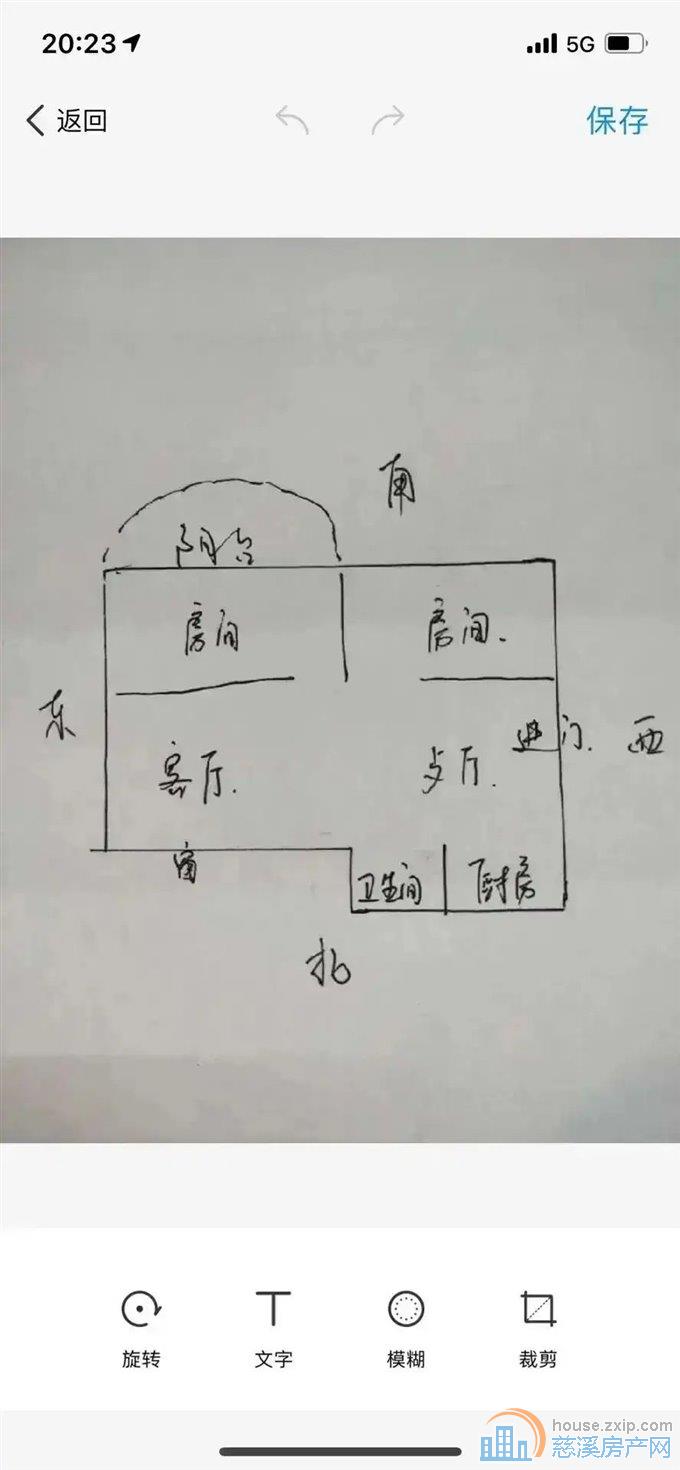 20:23
5G
返回
保存
南
阳台
房间
房间.
东
进门.
西
客厅.
歺厅.
窗
卫生间
厨房
北
旋转
文字
模糊
裁剪
house.zxip.com
慈溪房产网